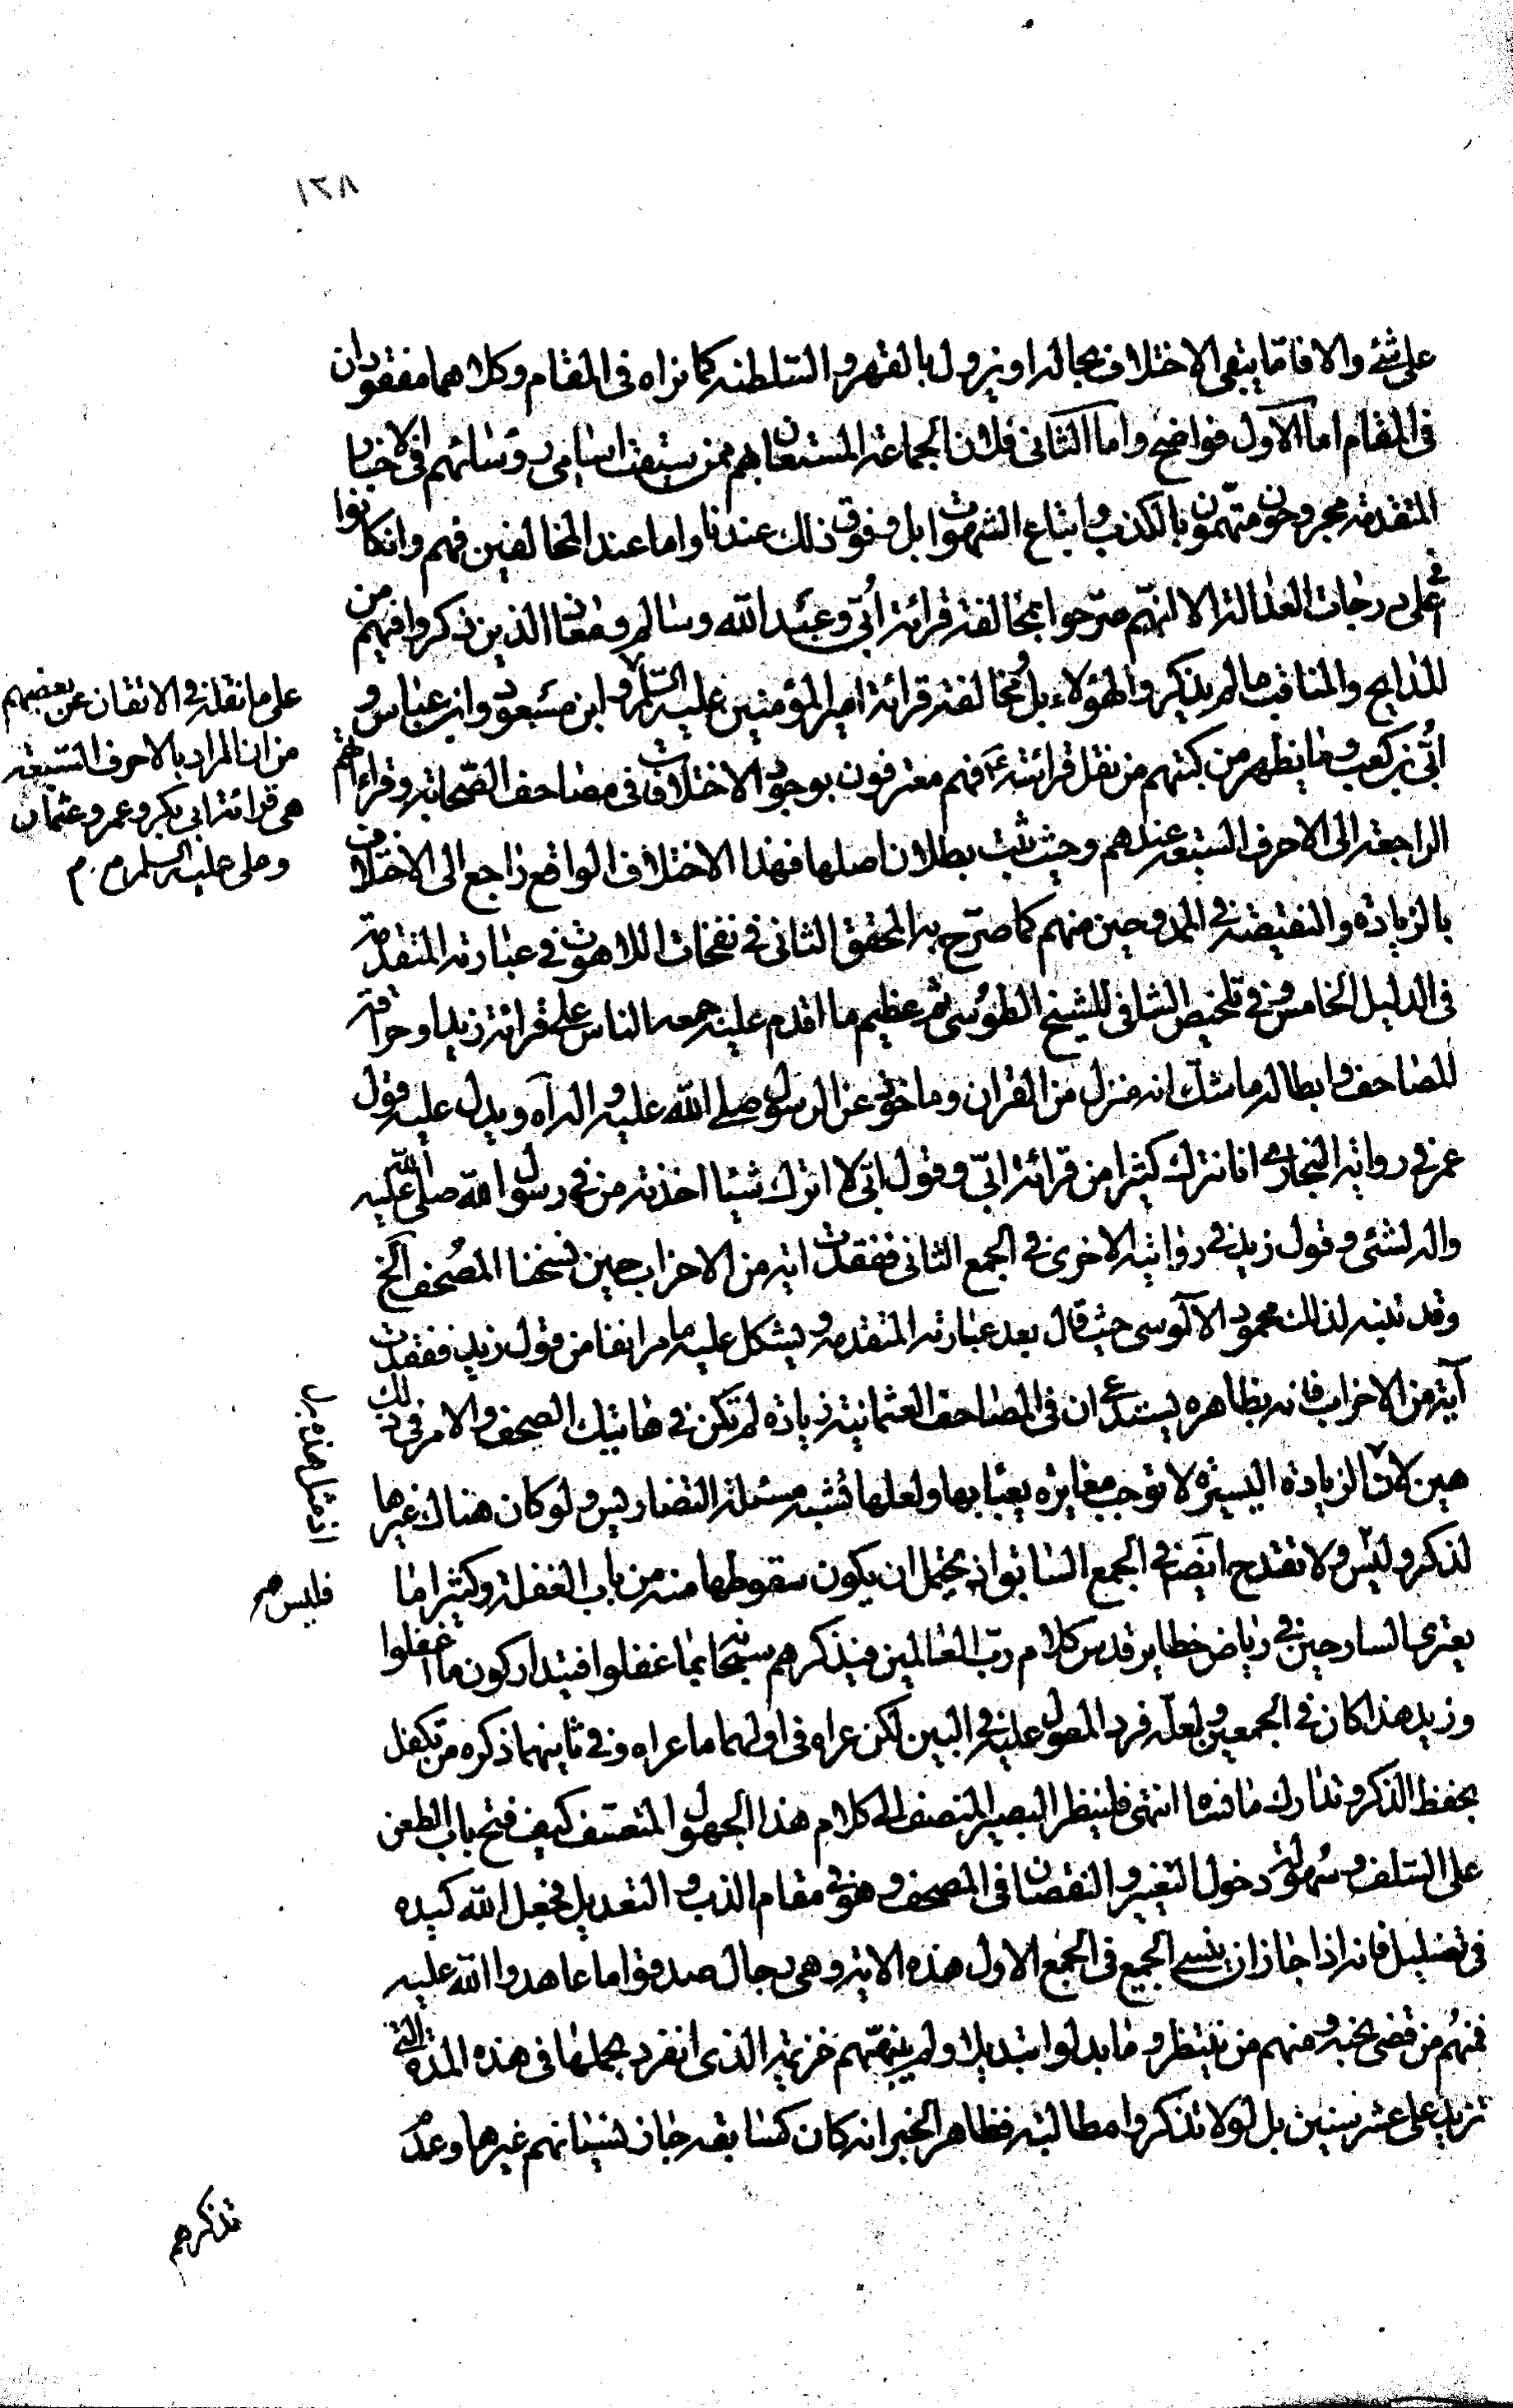 ١٣٨
على شئ والا فاما يبقى الاختلاف بحاله او يزول بالقهر والسلطنه كما نراه فى المقام وكلاهما مفقودان
فى المقام اما الاول فواضح واما الثانى فلان الجماعة المستعان بهم ممن سبقت اسامى رؤسائهم فى الاخبار
المتقدمة مجروحون متهمون بالكذب واتباع الشهوات بل وفوق ذلك عندنا واما عند المخالفين فهم وان كانوا
فى اعلى درجات العدالة الا انهم صرحوا بمخالفة قرائة أبى وعبد الله وسالم ومعاذ الذين ذكروا فيهم من
المدايح والمناقب ما لم يذكروا لهؤلاء بل ومخالفة قرائة امير المؤمنين عليه السلام و ابن مسعود وابن عباس و
أبى بن كعب وما يظهر من كتبهم من نقل قرائته ع فهم معترفون بوجود الاختلافات فى مصاحف الصحابة وقراءاتهم
الراجعة الى الاحرف السبعة عندهم وحيث ثبت بطلان اصلها فهذا الاختلاف الواقع راجع الى الاختلاف
بالزيادة والنقيصة فى الممدوحين منهم كما صرح به المحقق الثانى فى نفحات اللاهوت فى عبارته المتقدمة
فى الدليل الخامس وفى تلخيص الشافى للشيخ الطوسى ثم عظيم ما اقدم عليه جمعه الناس على قرائة زيد واحراقه
المصاحف وابطاله ما شك انه منزل من القران وماخوذ عن الرسول صلى الله عليه واله اه ويدل عليه قول
عمر فى رواية البخارى انا نترك كثيرا من قرائة ابى وقول ابى لا اترك شيئا اخذته من فى رسول الله صلى الله عليه
واله لشئ وقول زيد فى روايته الاخرى فى الجمع الثانى ففقدت اية من الاحزاب حين نسخنا المصحف الخ
وقد تنبه لذلك محمود الآلوسى حيث قال بعد عبارته المتقدمه و يشكل عليه ما مر انفا من قول زيد ففقدت
آية من الاحزاب فانه بظاهره يستدعى ان فى المصاحف العثمانية زيادة لم تكن فى هاتيك الصحف والامر فى ذلك
هين لان الزيادة اليسيرة لا توجب مغايرة يعبأ بها ولعلها تشبه مسئلة التضاريس ولو كان هناك غيرها
لذكر وليس ولا تقدح ايضا فى الجمع السابق اذ يحتمل ان يكون سقوطها منه من باب الغفلة وكثيرا ما
يعترى السارحين فى رياض حظاير قدس كلام رب العالمين فيذكرهم سبحانه بما غفلوا فيتداركون ما اغفلوا
وزيد هذا كان فى الجمعين ولعله فرد المعول عليه فى البين لكن عراه فى اولهما ما عراه وفى ثانيهما ذكره من تكفل
بحفظ الذكر وتدارك ما نساه انتهى فلينظر البصير المنصف الى كلام هذا الجهول المتعسف كيف فتح باب الطعن
على السلف وسهولة دخول التغيير و النقصان فى المصحف و هو فى مقام الذب و التعديل فجعل الله كيده
فى تضليل فانه اذا جاز ان ينسى الجميع فى الجمع الاول هذه الاية وهى رجال صدقوا ما عاهدوا الله عليه
فمنهم من قضى نحبه ومنهم من ينتظر و ما بدلوا تبديلا ولم ينبههم خزيمة الذى انفرد بحملها فى هذه المدة التى
تزيد على عشر سنين بل لولا تذكروا مطالبته فظاهر الخبر انه كان كسابقه جاز نسيانهم غيرها وعدم
تذكرهم
على ما نقله فى الاتقان عن بعضهم
من ان المراد بالاحرف السبعة
هى قرائة ابى بكر وعمر وعثمان
وعلى عليه السلام م
فليس